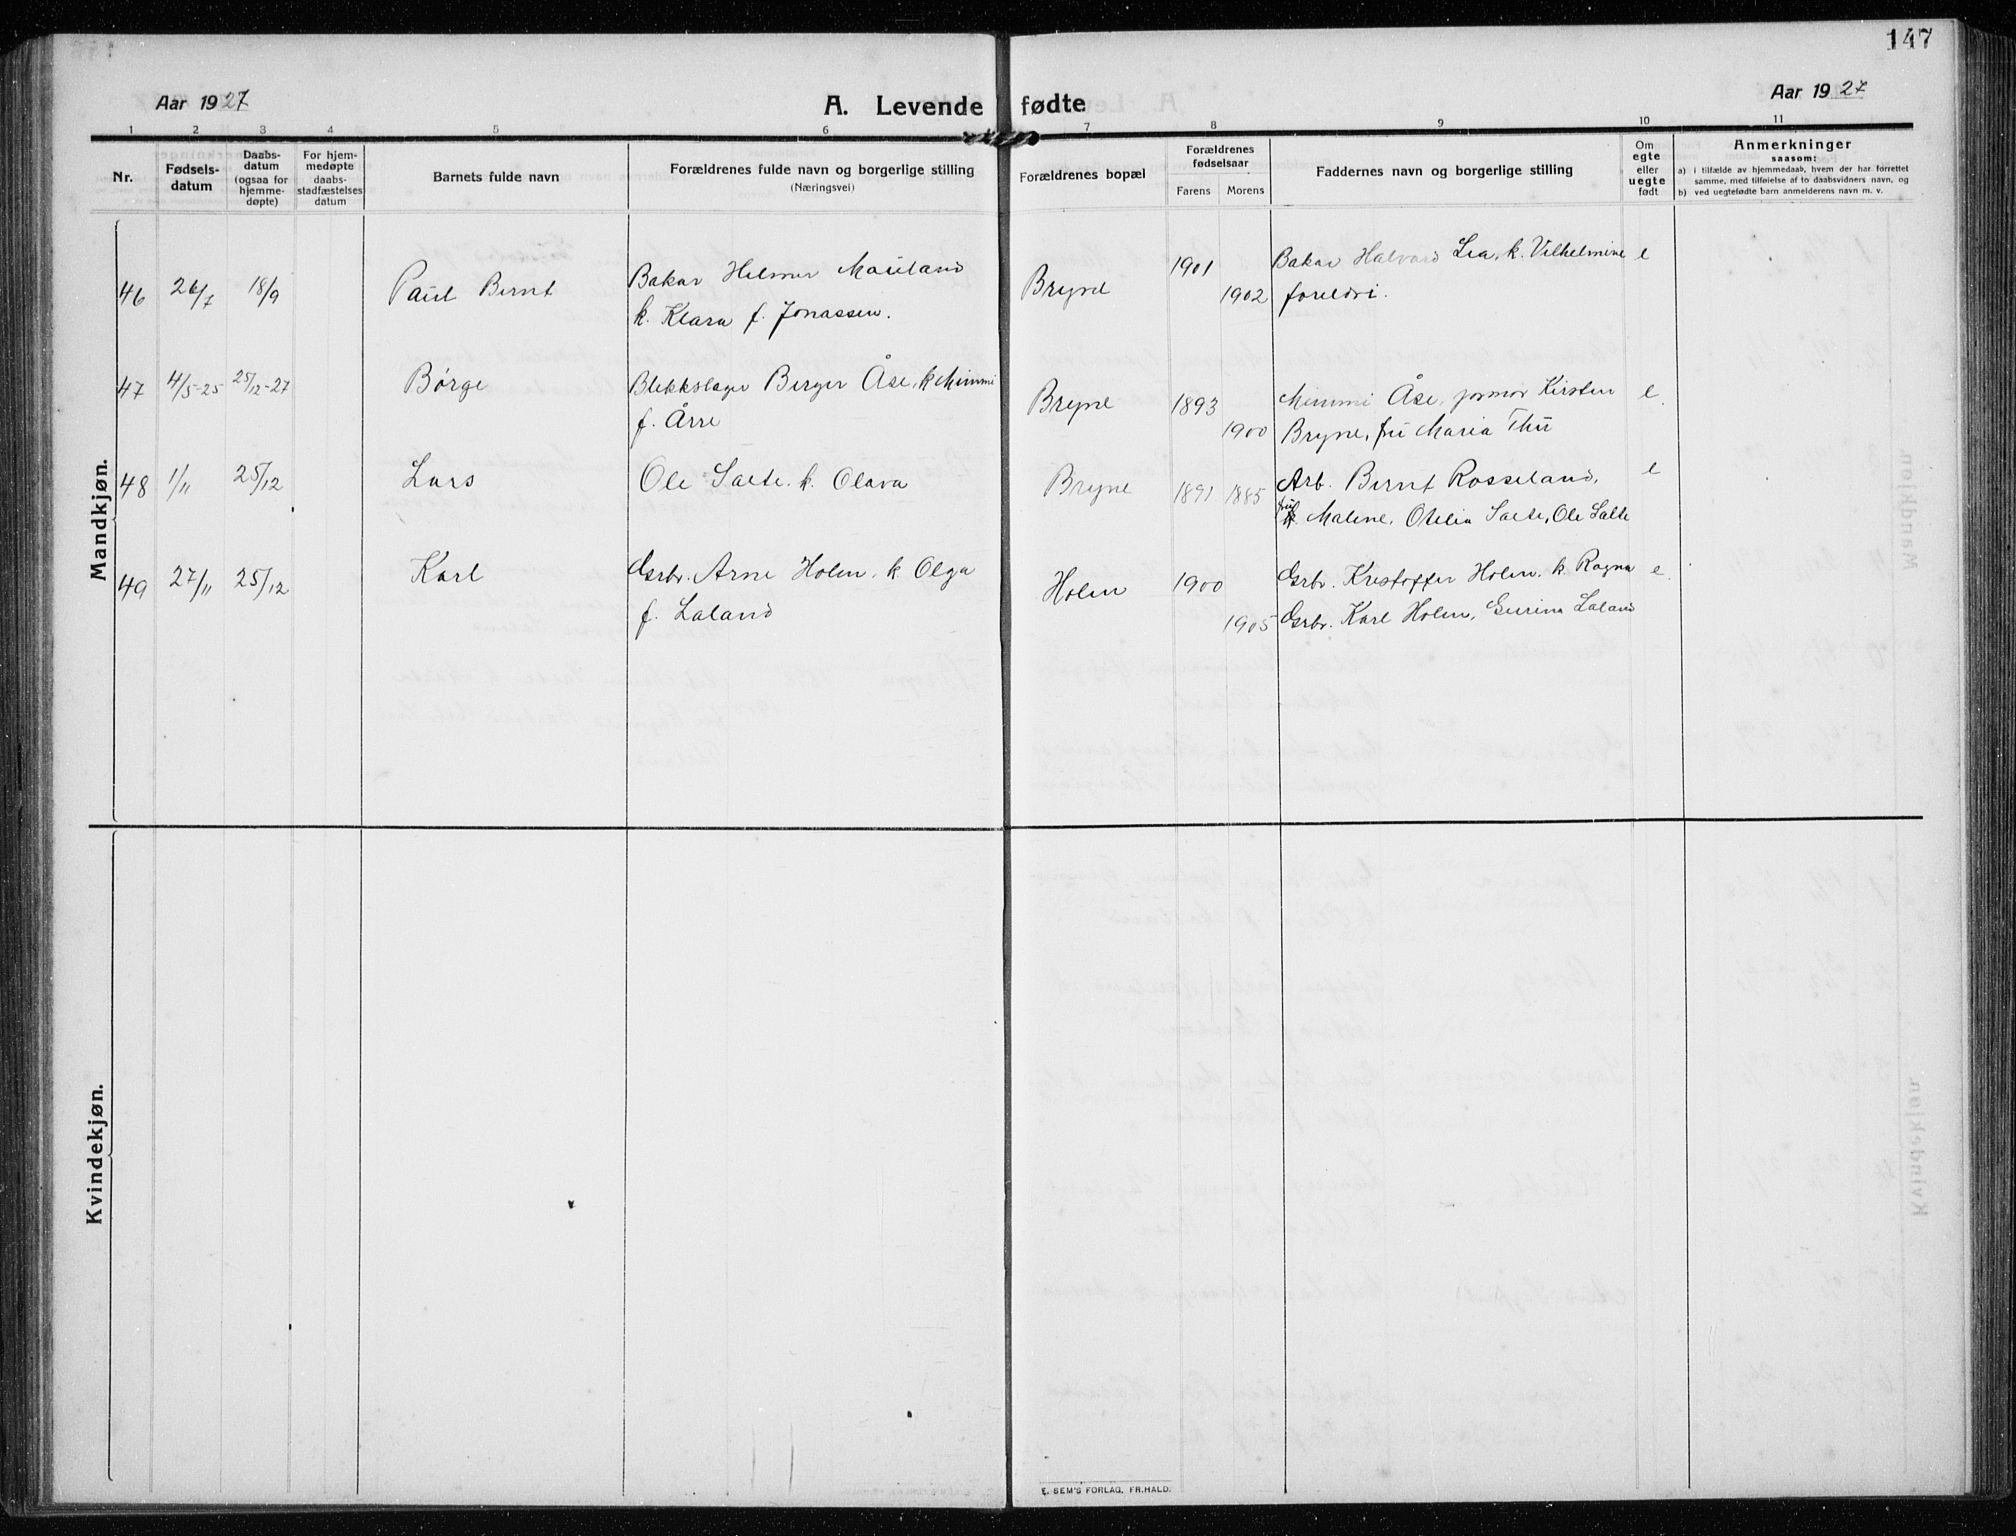 147
Aar 1927
A. Levende fødte
Aar 1927
1 2 3 4 5 6 7 8 9 10 11
Nr.
Fødsels-
datum
Daabs-
datum
(ogsaa for
hjemme-
døpte)
For hjem-
medøpte
daabs-
stadfæstelses
datum
Barnets fulde navn
Forældrenes fulde navn og borgerlige stilling
(Næringsvei)
Forældrenes bopæl
Forældrenes
fødselsaar
Farens Morens
Faddernes navn og borgerlige stilling
Om
egte
eller
uegte
født
Anmerkninger
saasom:
a) i tilfælde av hjemmedaab, hvem der har forrettet
samme, med tilføielse af to daabsvidners navn, og
b) ved uegtefødte barn anmelderens navn m. v.
Mandkjøn.
46 26/7 18/9 Paul Bernt Bakar Helmer Mauland Bryne 1901 Bakar Halvard Lea, k. Vilhelmine e
k. Klara f. Jonassen. 1902 foreldri.
47 4/5-25 25/12-27 Børge Blekkslager Berger Åse, k Mimmi Bryne 1893 Mimmi Åse, formor Kirsten e.
f. Årre 1900 Bryne, fru Maria Thu
48 1/11 25/12 Lars Ole Salte k. Olava Bryne 1891 1885 Arb. Bernt Rosseland, e
fru Malene, Otelia Salte, Ole Salte
49 27/11 25/12 Karl Grbr. Arne Holen, k. Olga Holen 1900 Grbr. Kristoffer Holen, k. Ragna e.
f. Laland 1905 Grbr. Karl Holen, Gurina Laland
Kvindekjøn.
E. SEM'S FORLAG, FR.HALD.